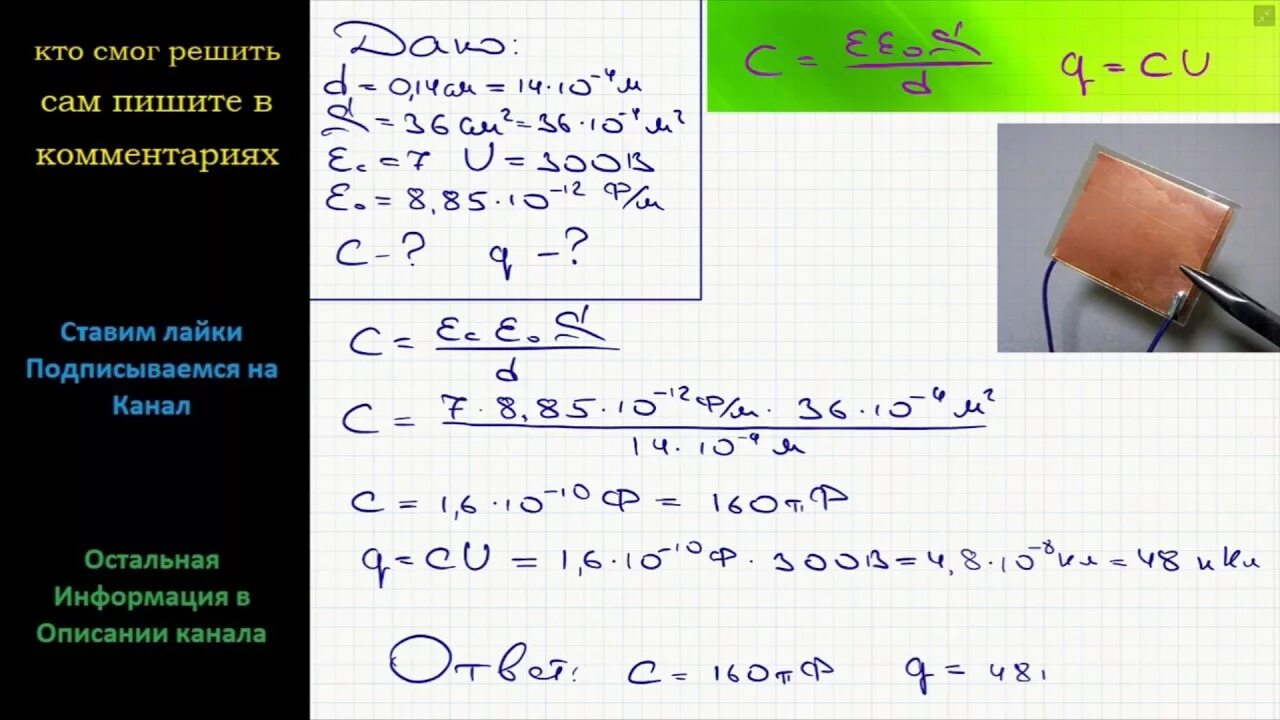 кто смог решить
сам пишите в
комментариях
Ставим лайки
Подписываемся на
Канал
Остальная
Информация в
Описании канала
Дано:
d = 0,14см = 14·10⁻⁴м
S = 36см² = 36·10⁻⁴м²
εс = 7 U = 300В
ε₀ = 8,85·10⁻¹² Ф/м
C - ? q - ?
C = εε₀S/d q = CU
C = εсε₀S/d
C = 7·8,85·10⁻¹²Ф/м·36·10⁻⁴м²/14·10⁻⁴м
C = 1,6·10⁻¹⁰Ф = 160пФ
q = CU = 1,6·10⁻¹⁰Ф·300В = 4,8·10⁻⁸Кл = 48нКл
Ответ: C = 160пФ q = 48